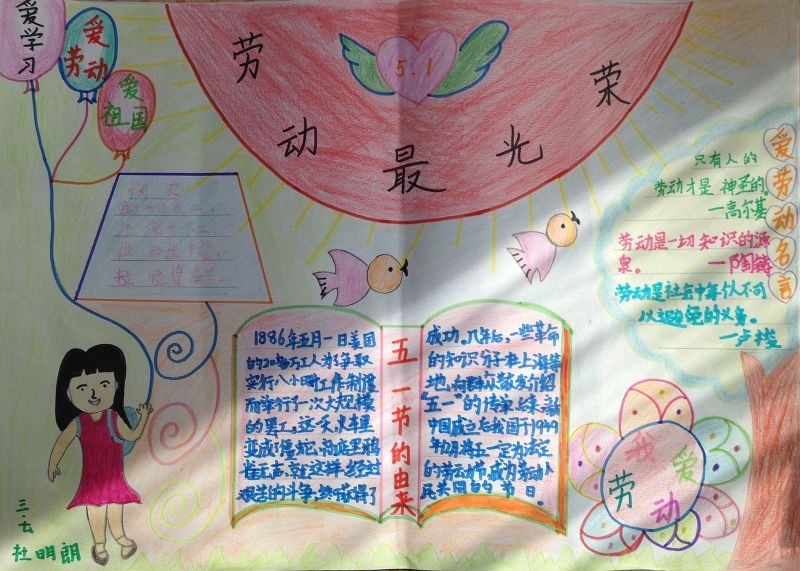 爱学习
爱劳动
爱祖国
5.1
劳动最光荣
悯农
粒粒皆
爱劳动名言
只有人的
劳动才是神圣的。
—高尔基
劳动是一切知识的源
泉。
—陶铸
劳动是社会中每个人不可
以避免的义务。
—卢梭
五一节的由来
1886年五月一日美国
的20多万工人为争取
实行八小时工作制度
而举行了一次大规模
的罢工。这天,火车里
变成了像蛇,商店里鸦
雀无声,就这样,经过
艰苦的斗争,终于获得了
成功。几年后,一些革命
的知识分子在上海等
地,向群众散发介绍
"五一"的传单
中国成立后我国于1949
年12月将五一定为法定
的劳动节,成为劳动人
民共同的节日。
我爱
劳动
三.七
杜明朗